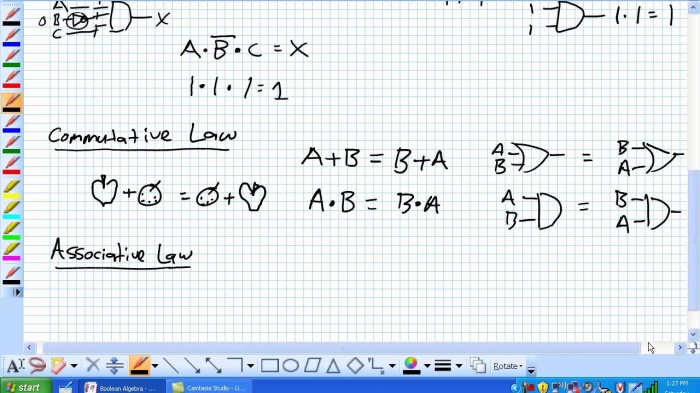 A
0 B
C
X
1 · 1 = 1
1
A · B̅ · C = X
1 · 1 · 1 = 1
Commutative Law
A + B = B + A
A B = B A
+ = +
A · B = B · A
A B = B A
Associative Law
Rotate
start
Boolean Algebra - ...
Camtasia Studio - U...
1:27 PM